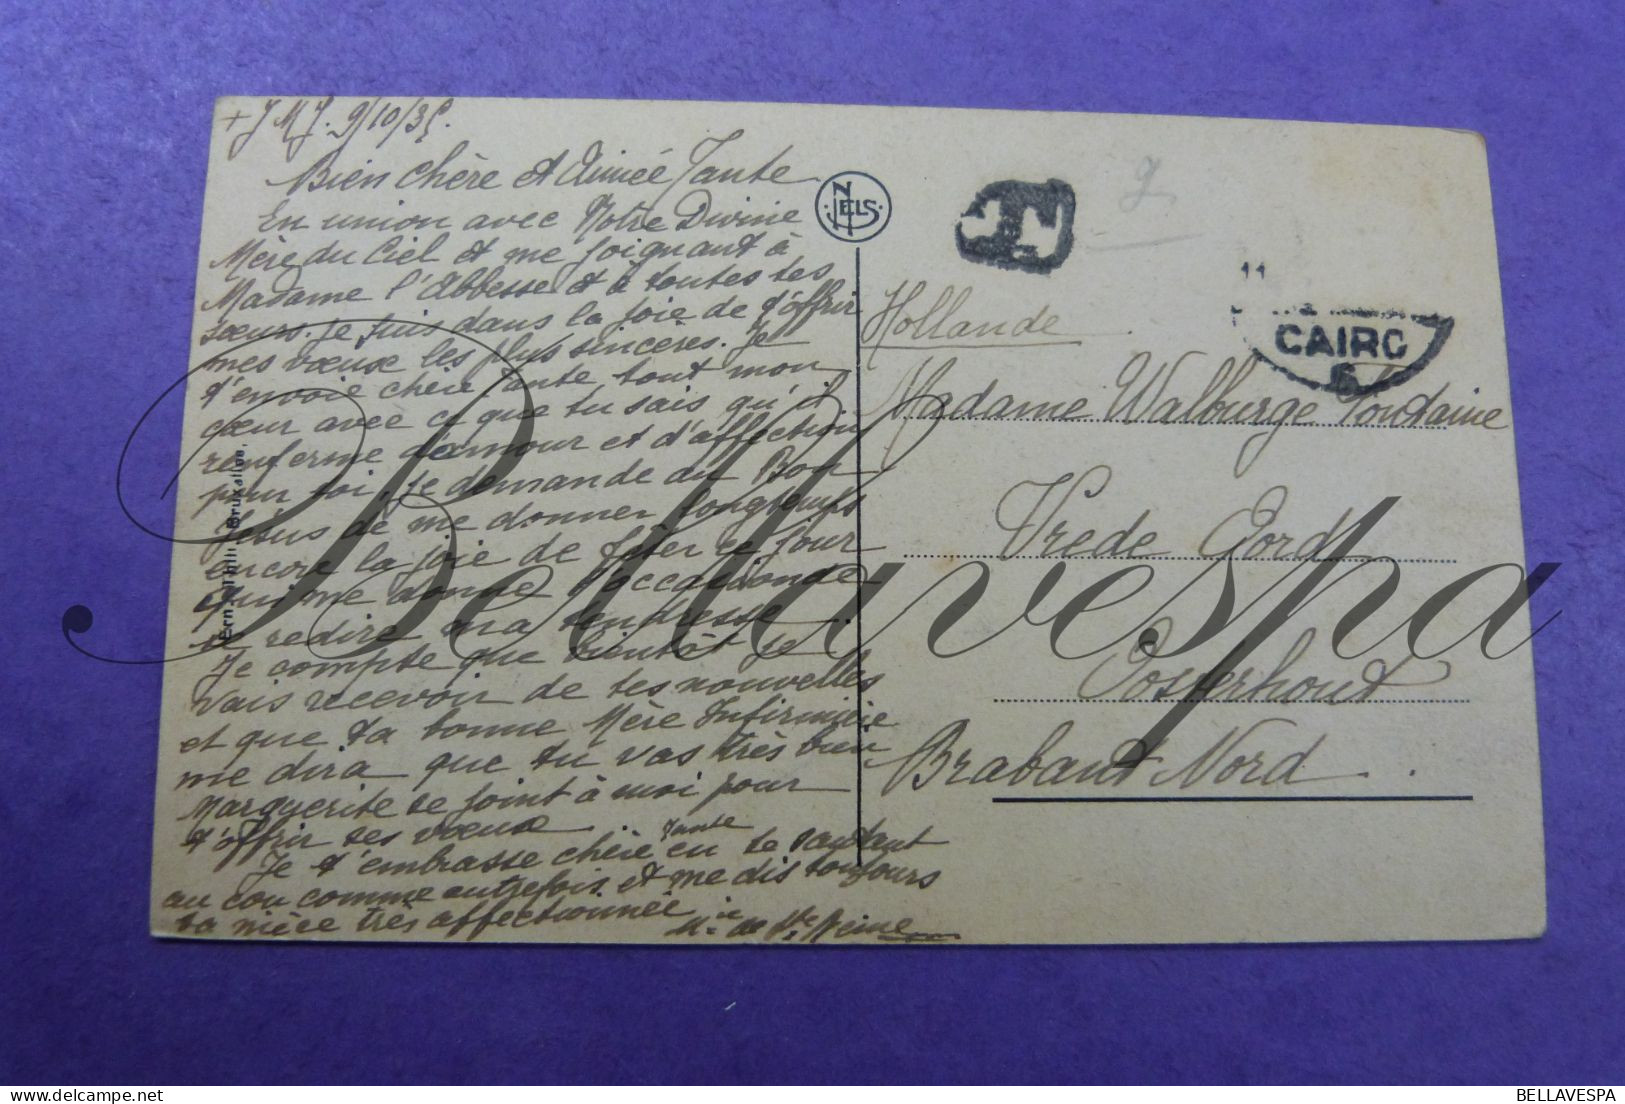 + J M J. 9/10/35.
Bien chère et Aimée Tante
En union avec Notre Divine
Mère du Ciel et me joignant à
Madame l'Abbesse et à toutes tes
sœurs. je suis dans la joie de t'offrir
mes vœux les plus sincères. Je
t'envoie chère Tante tout mon
cœur avec ce que tu sais qu'il
renferme d'amour et d'affection
pour toi, je demande au Bon
Jésus de me donner longtemps
encore la joie de fêter ce jour
qui me donne l'occasion de
te redire ma tendresse.
Je compte que bientôt je
vais recevoir de tes nouvelles
et que ta bonne Mère Infirmière
me dira que tu vas très bien
Marguerite se joint à moi pour
t'offrir ses vœux
Je t'embrasse chère Tante en te sautant
au cou comme autrefois et me dis toujours
ta nièce très affectionnée
Mie de Ste Reine
NELS
Ern. Thill, Bruxelles
T
CAIRO
6
11
Hollande
Madame Walburge Fontaine
Vrede Oord
Oosterhout
Brabant Nord
Bellavespa
BELLAVESPA